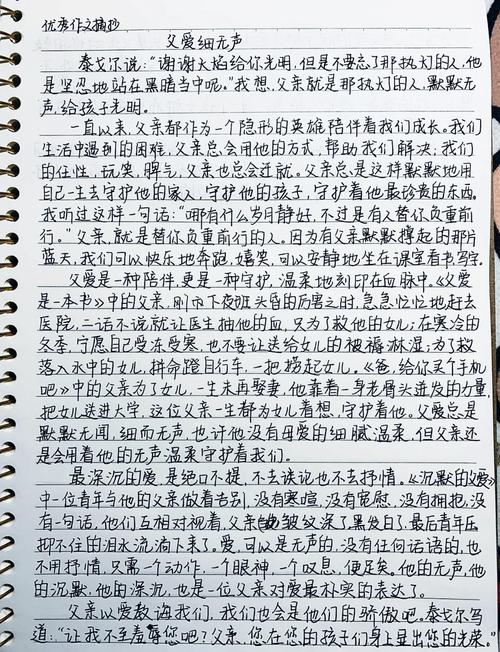 优秀作文摘抄
父爱细无声
泰戈尔说:“谢谢火焰给你光明,但是不要忘了那执灯的人,他
是坚忍地站在黑暗当中呢。”我想,父亲就是那执灯的人,默默无
声,给孩子光明。
一直以来,父亲都作为一个隐形的英雄陪伴着我们成长。我们
生活中遇到的困难,父亲总会用他的方式,帮助我们解决;我们
的任性,玩笑,脾气,父亲也总会迁就。父亲总是这样默默地用
自己一生去守护他的家人,守护他的孩子,守护着他最珍贵的东西。
我听过这样一句话:“哪有什么岁月静好,不过是有人替你负重前
行。”父亲,就是替你负重前行的人。因为有父亲默默撑起的那片
蓝天,我们可以快乐地奔跑,嬉笑,可以安静地坐在课堂看书写字。
父爱是一种陪伴,更是一种守护,温柔地刻印在血脉中。《父爱
是一本书》中的父亲,刚下夜班头昏的厉害之时,急急忙忙地赶去
医院,二话不说就让医生抽他的血,只为了救他的女儿;在寒冷的
冬季,宁愿自己受冻受寒,也不要让送给女儿的被褥淋湿;为了救
落入水中的女儿,拼命蹬自行车,一把捞起女儿。《爸,给你买个手机
吧》中的父亲为了女儿,一生未再娶妻,他靠着一身老骨头迸发的力量,
把女儿送进大学,这位父亲一生都为女儿着想,守护着他。父爱总是
默默无闻,细而无声,也许他没有母爱的细腻温柔,但父亲还
是会用着他的无声温柔守护着我们。
最深沉的爱,是绝口不提,不去谈论也不去抒情。《沉默的父爱》
中一位青年与他的父亲做着告别,没有寒暄,没有宽慰,没有拥抱,没
有一句话,他们互相对视着,父亲皱纹深了黑发白了,最后青年压
抑不住的泪水流淌下来了。爱,可以是无声的,没有任何话语的,也
不用抒情,只需一个动作,一个眼神,一个叹息,便足矣。他的无声,他
的沉默,他的深沉,也是一位父亲对爱最朴实的表达了。
父亲以爱教诲我们,我们也会是他们的骄傲吧。泰戈尔写
道:“让我不至羞辱您吧?父亲,您在您的孩子们身上显出您的光荣。”